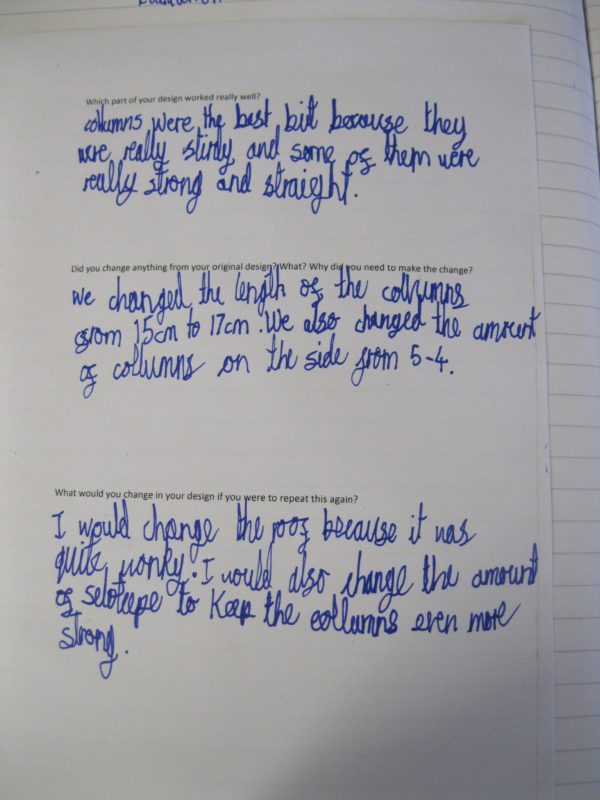 Which part of your design worked really well?
collumns were the best bit because they
were really stirdy and some of them were
really strong and straight.
Did you change anything from your original design? What? Why did you need to make the change?
We changed the length of the collyumns
from 15cm to 17cm. We also changed the amount
of collumns on the side from 5-4.
What would you change in your design if you were to repeat this again?
I would change the roof because it was
quite wonky. I would also change the amount
of seloteepe to Keep the collumns even more
strong.